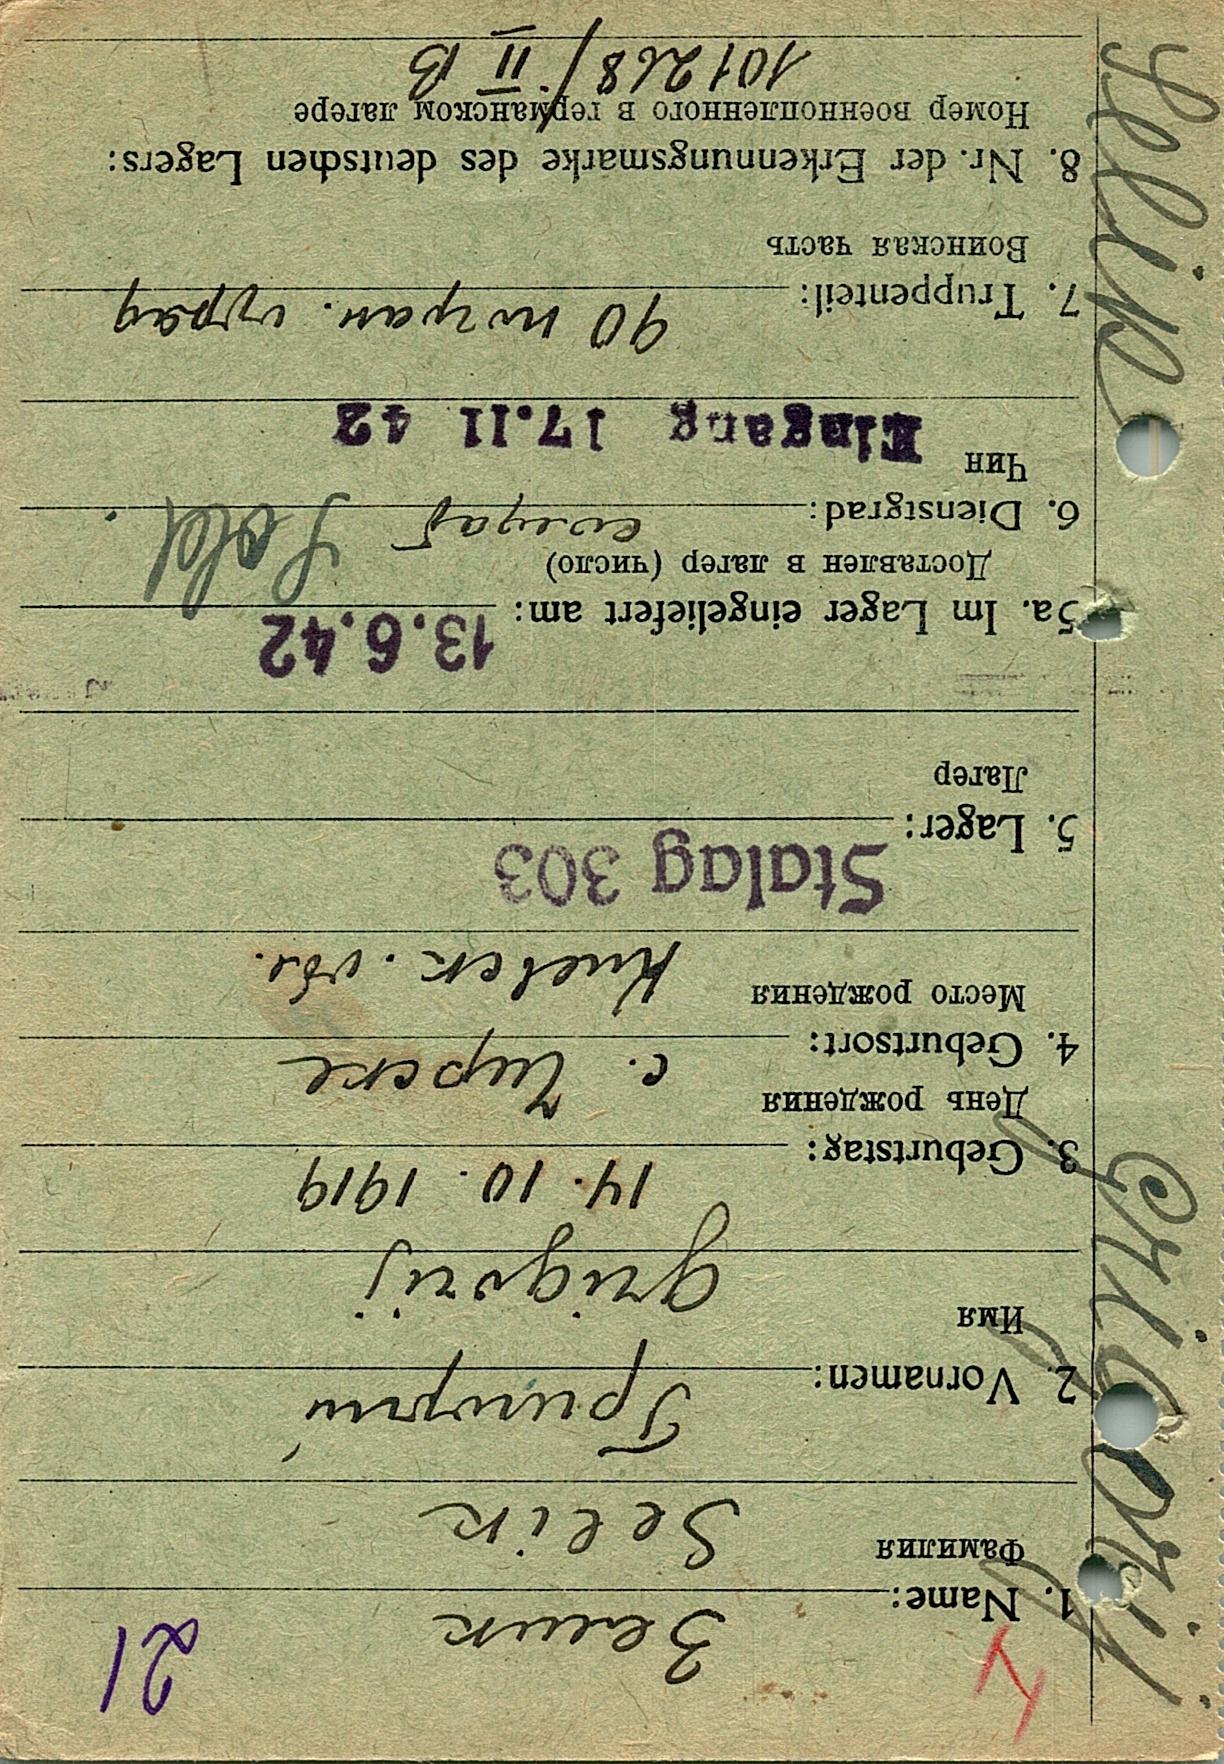 21
Зелик
1. Name:
Фамилия
Selik
Григорий
2. Vornamen:
Имя
Grigorij
14. 10. 1919
3. Geburtstag:
День рождения
с.
4. Geburtsort:
Место рождения
Киевск. обл.
Stalag 303
5. Lager:
Лагер
13.6.42
5a. Im Lager eingeliefert am:
Доставлен в лагер (число)
6. Dienstgrad:
солдат Sold.
Чин
Eingang 17.11 42
90 погран. отряд
7. Truppenteil:
Воинская часть
8. Nr. der Erkennungsmarke des deutschen Lagers:
Номер военнопленного в германском лагере
101268/II B
Selik Grigorij